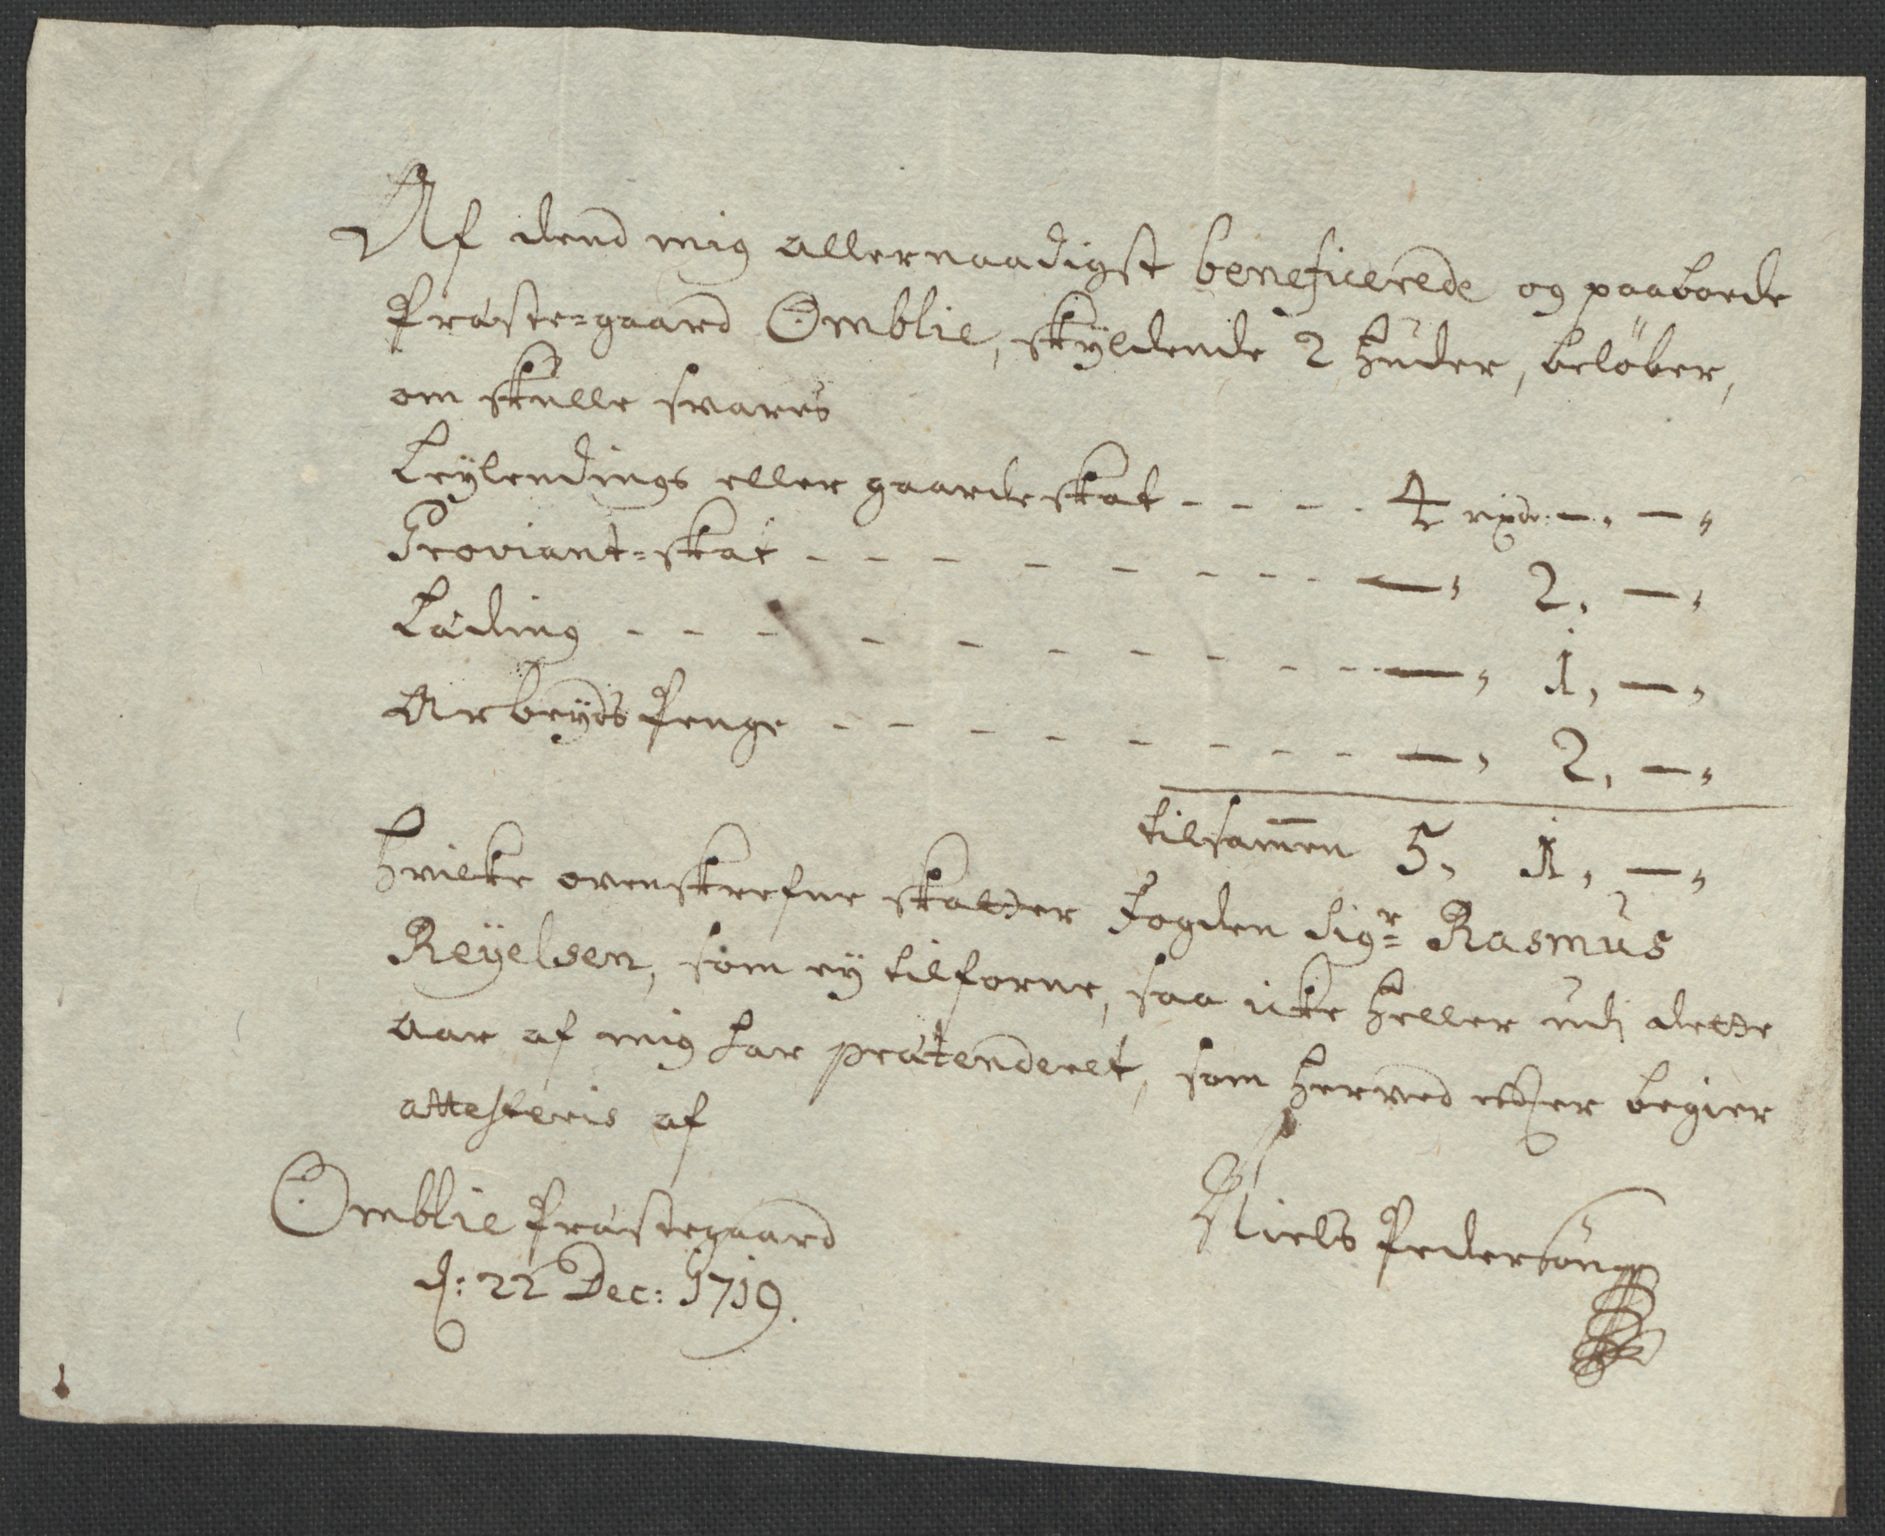 Af dend mig allernaadigst beneficerede og paaboede
Præste-gaard Omblie, skyldende 2 Huder, beløber,
om skulle svares
Leylendings eller gaardeskat - - - - 4 rixdr. —, — „
Proviant-skat - - - - - - - - — „ 2, — „
Læding - - - - - - - - - - — „ 1, — „
Arbeyds Penge - - - - - - - - — „ 2, — „
tilsam̄en 5, 1, — „
Hvilke ovenskrefne skatter Fogden Sigr Rasmus
Reyelsen, som ey tilforne, saa icke heller udj dette
aar af mig har prætenderet, som herved efter begier
attesteris af
Omblie Præstegaard
d: 22 Dec: 1719.
Niels Pedersøn